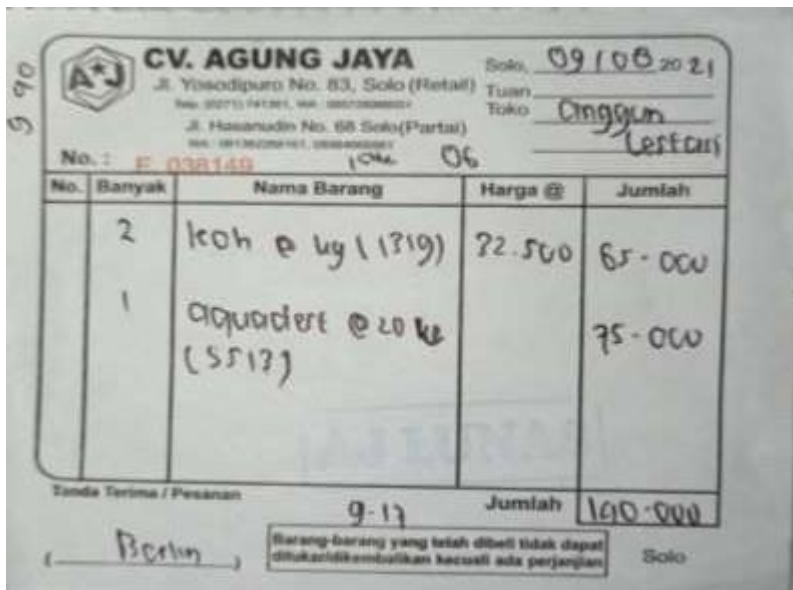 9 90
A*J
CV. AGUNG JAYA
Jl. Yosodipuro No. 83, Solo (Retail)
Jl. Hasanudin No. 68 Solo(Partai)
Solo, 09/08 2021
Tuan
Toko Anggun
Lestari
No. : F 038149
06
No. Banyak Nama Barang Harga @ Jumlah
2 koh @ kg (1319) 32.500 65-000
1 aquadest @ 20 kg 75-000
(5513)
Tanda Terima / Pesanan
9-17
Jumlah 140-000
Barang-barang yang telah dibeli tidak dapat
ditukar/dikembalikan kecuali ada perjanjian
Solo